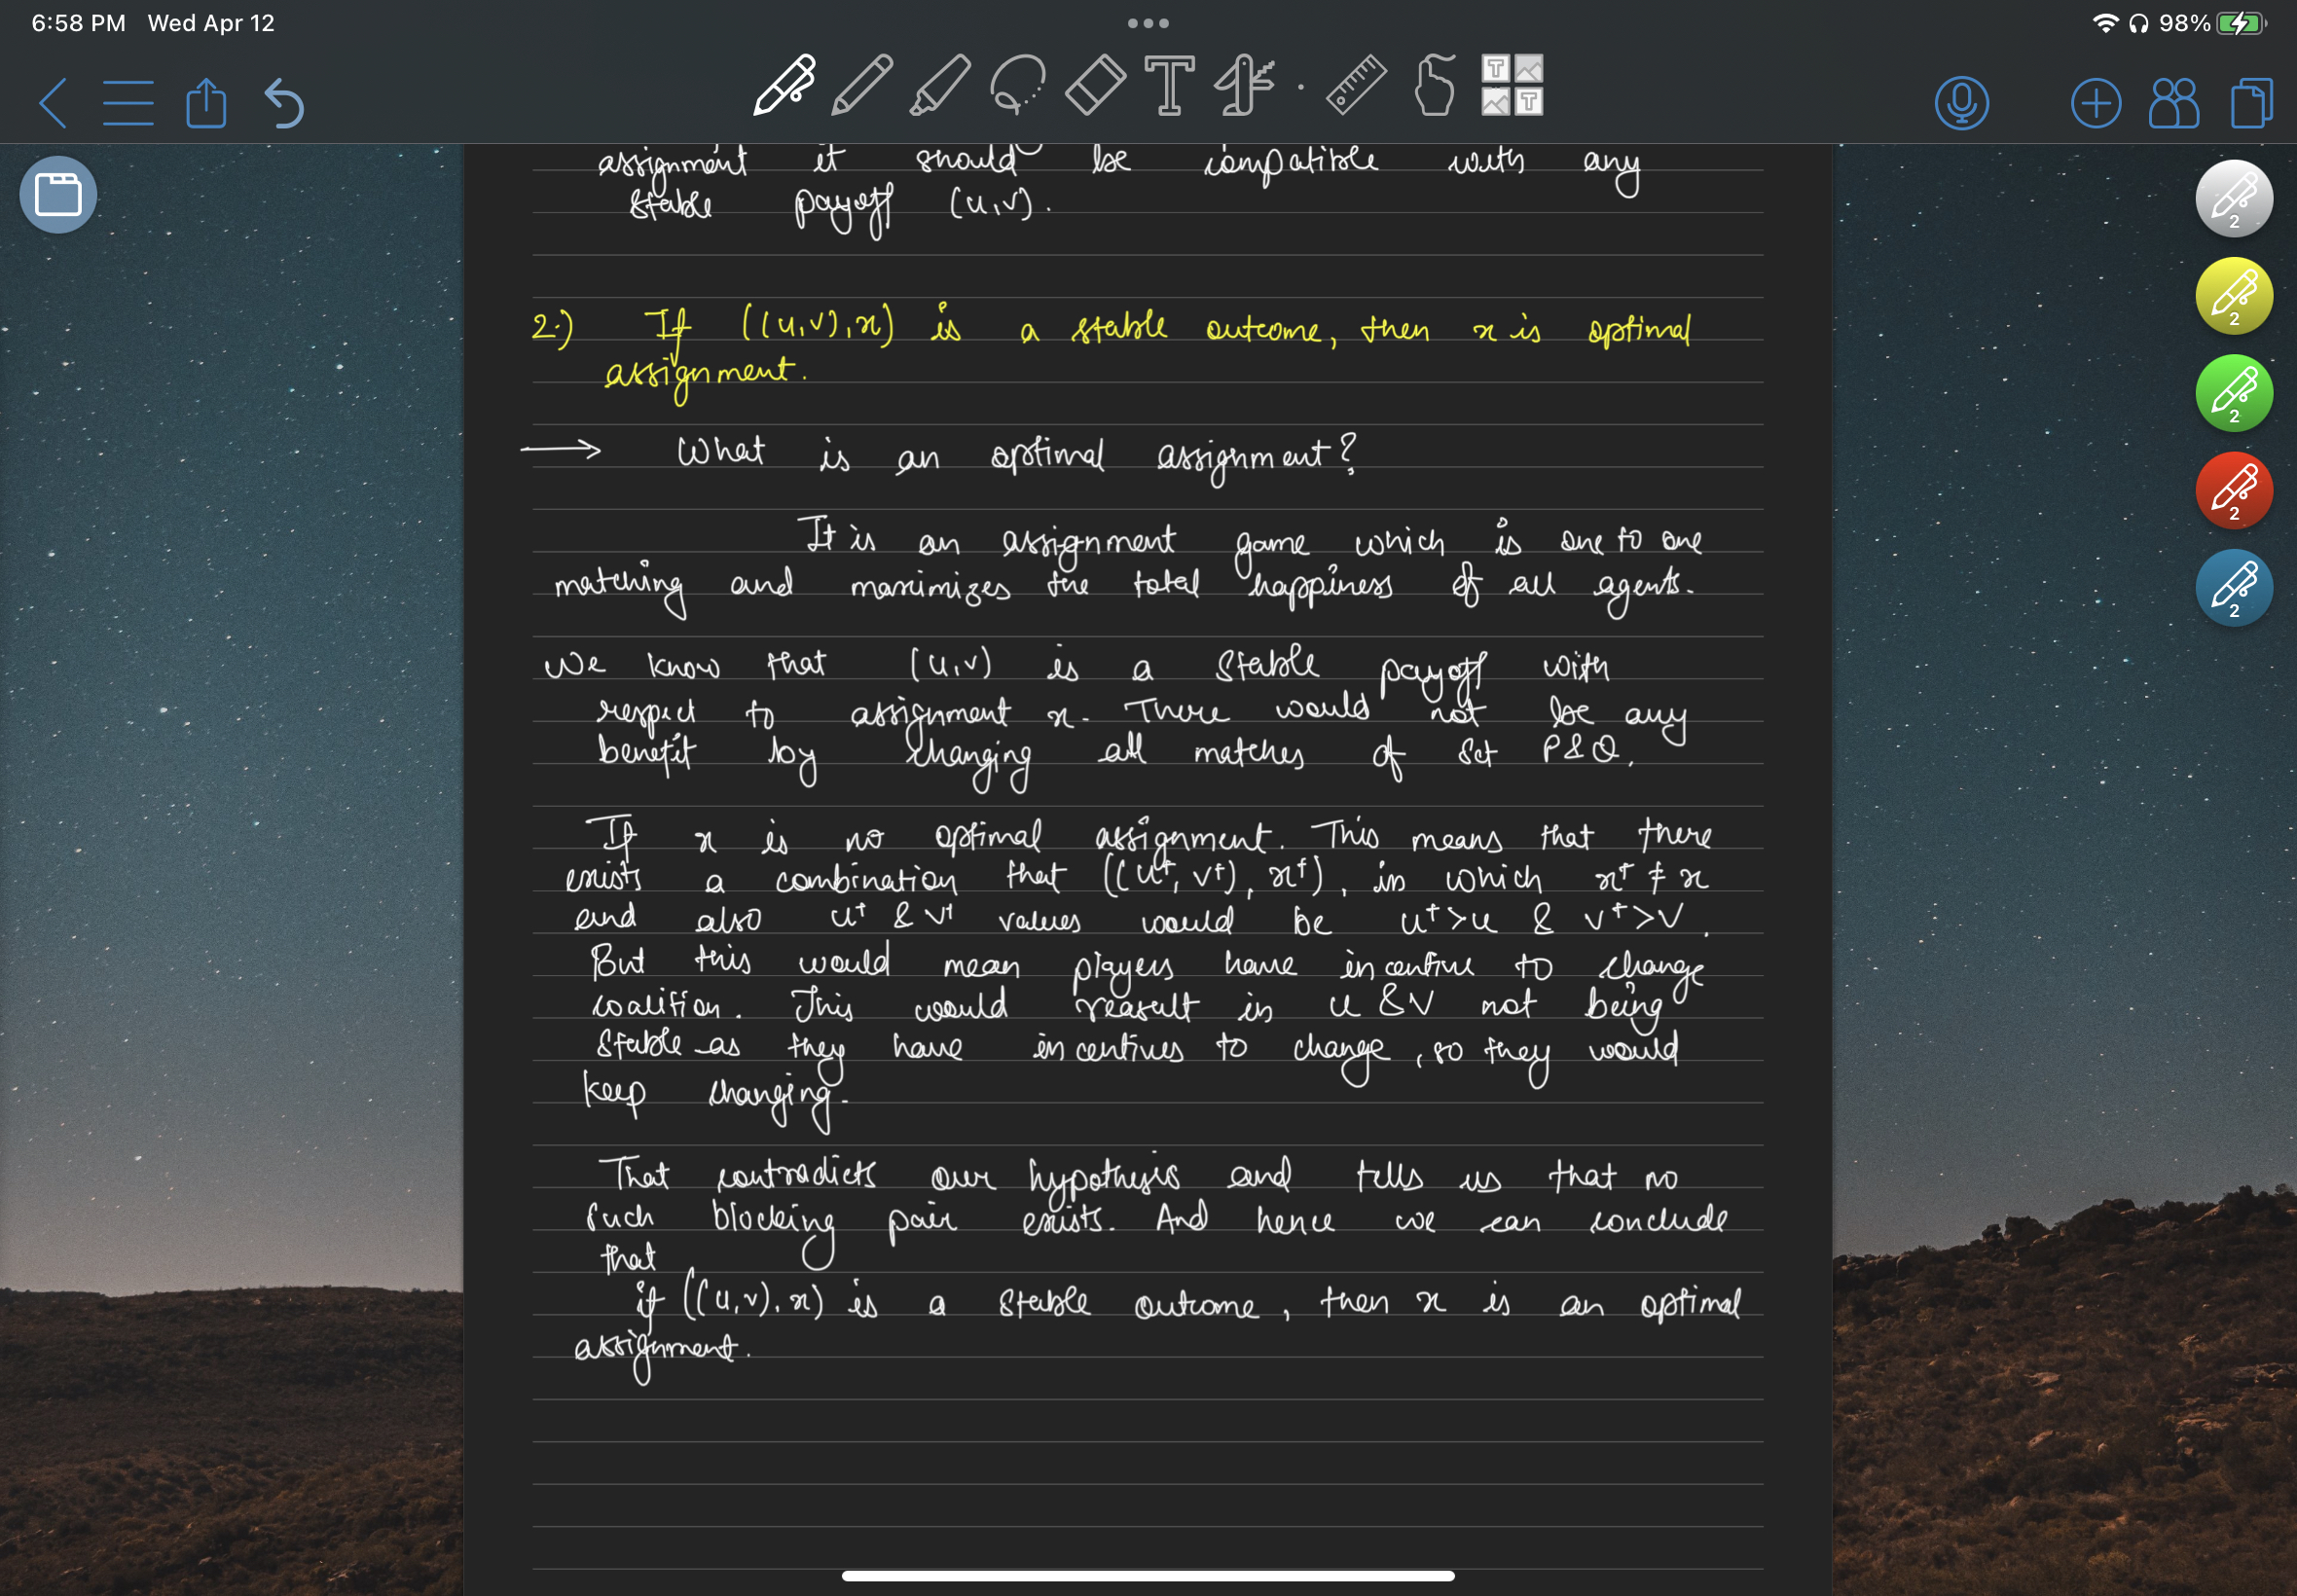 6:58 PM Wed Apr 12
98%
assignment it should be compatible with any
stable payoff (u,v).
2.) If ((u,v),x) is a stable outcome, then x is optimal
assignment.
→ What is an optimal assignment?
It is an assignment game which is one to one
matching and maximizes the total happiness of all agents.
We know that (u,v) is a stable payoff with
respect to assignment x. There would not be any
benefit by changing all matches of set P&Q.
If x is no optimal assignment. This means that there
exists a combination that ((u†, v†), x†), in which x† ≠ x
and also u† & v† values would be u†>u & v†>v.
But this would mean players have incentive to change
coalition. This would reasult in u &v not being
stable as they have incentives to change, so they would
keep changing.
That contradicts our hypothesis and tells us that no
such blocking pair exists. And hence we can conclude
that
if ((u,v),x) is a stable outcome, then x is an optimal
assignment.
2
2
2
2
2